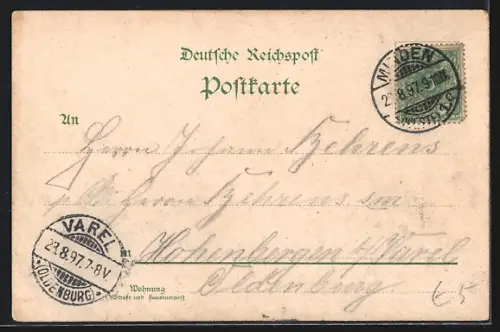 Deutsche Reichspost
Postkarte
MINDEN
8.97.9
An
Herrn Johann Behrens
Herrn Behrens sen
VAREL
23.8.97.7-8V
(OLDENBURG)
in Hohenbergen b/Varel
Oldenburg
Wohnung
(Straße und Hausnummer)
€5